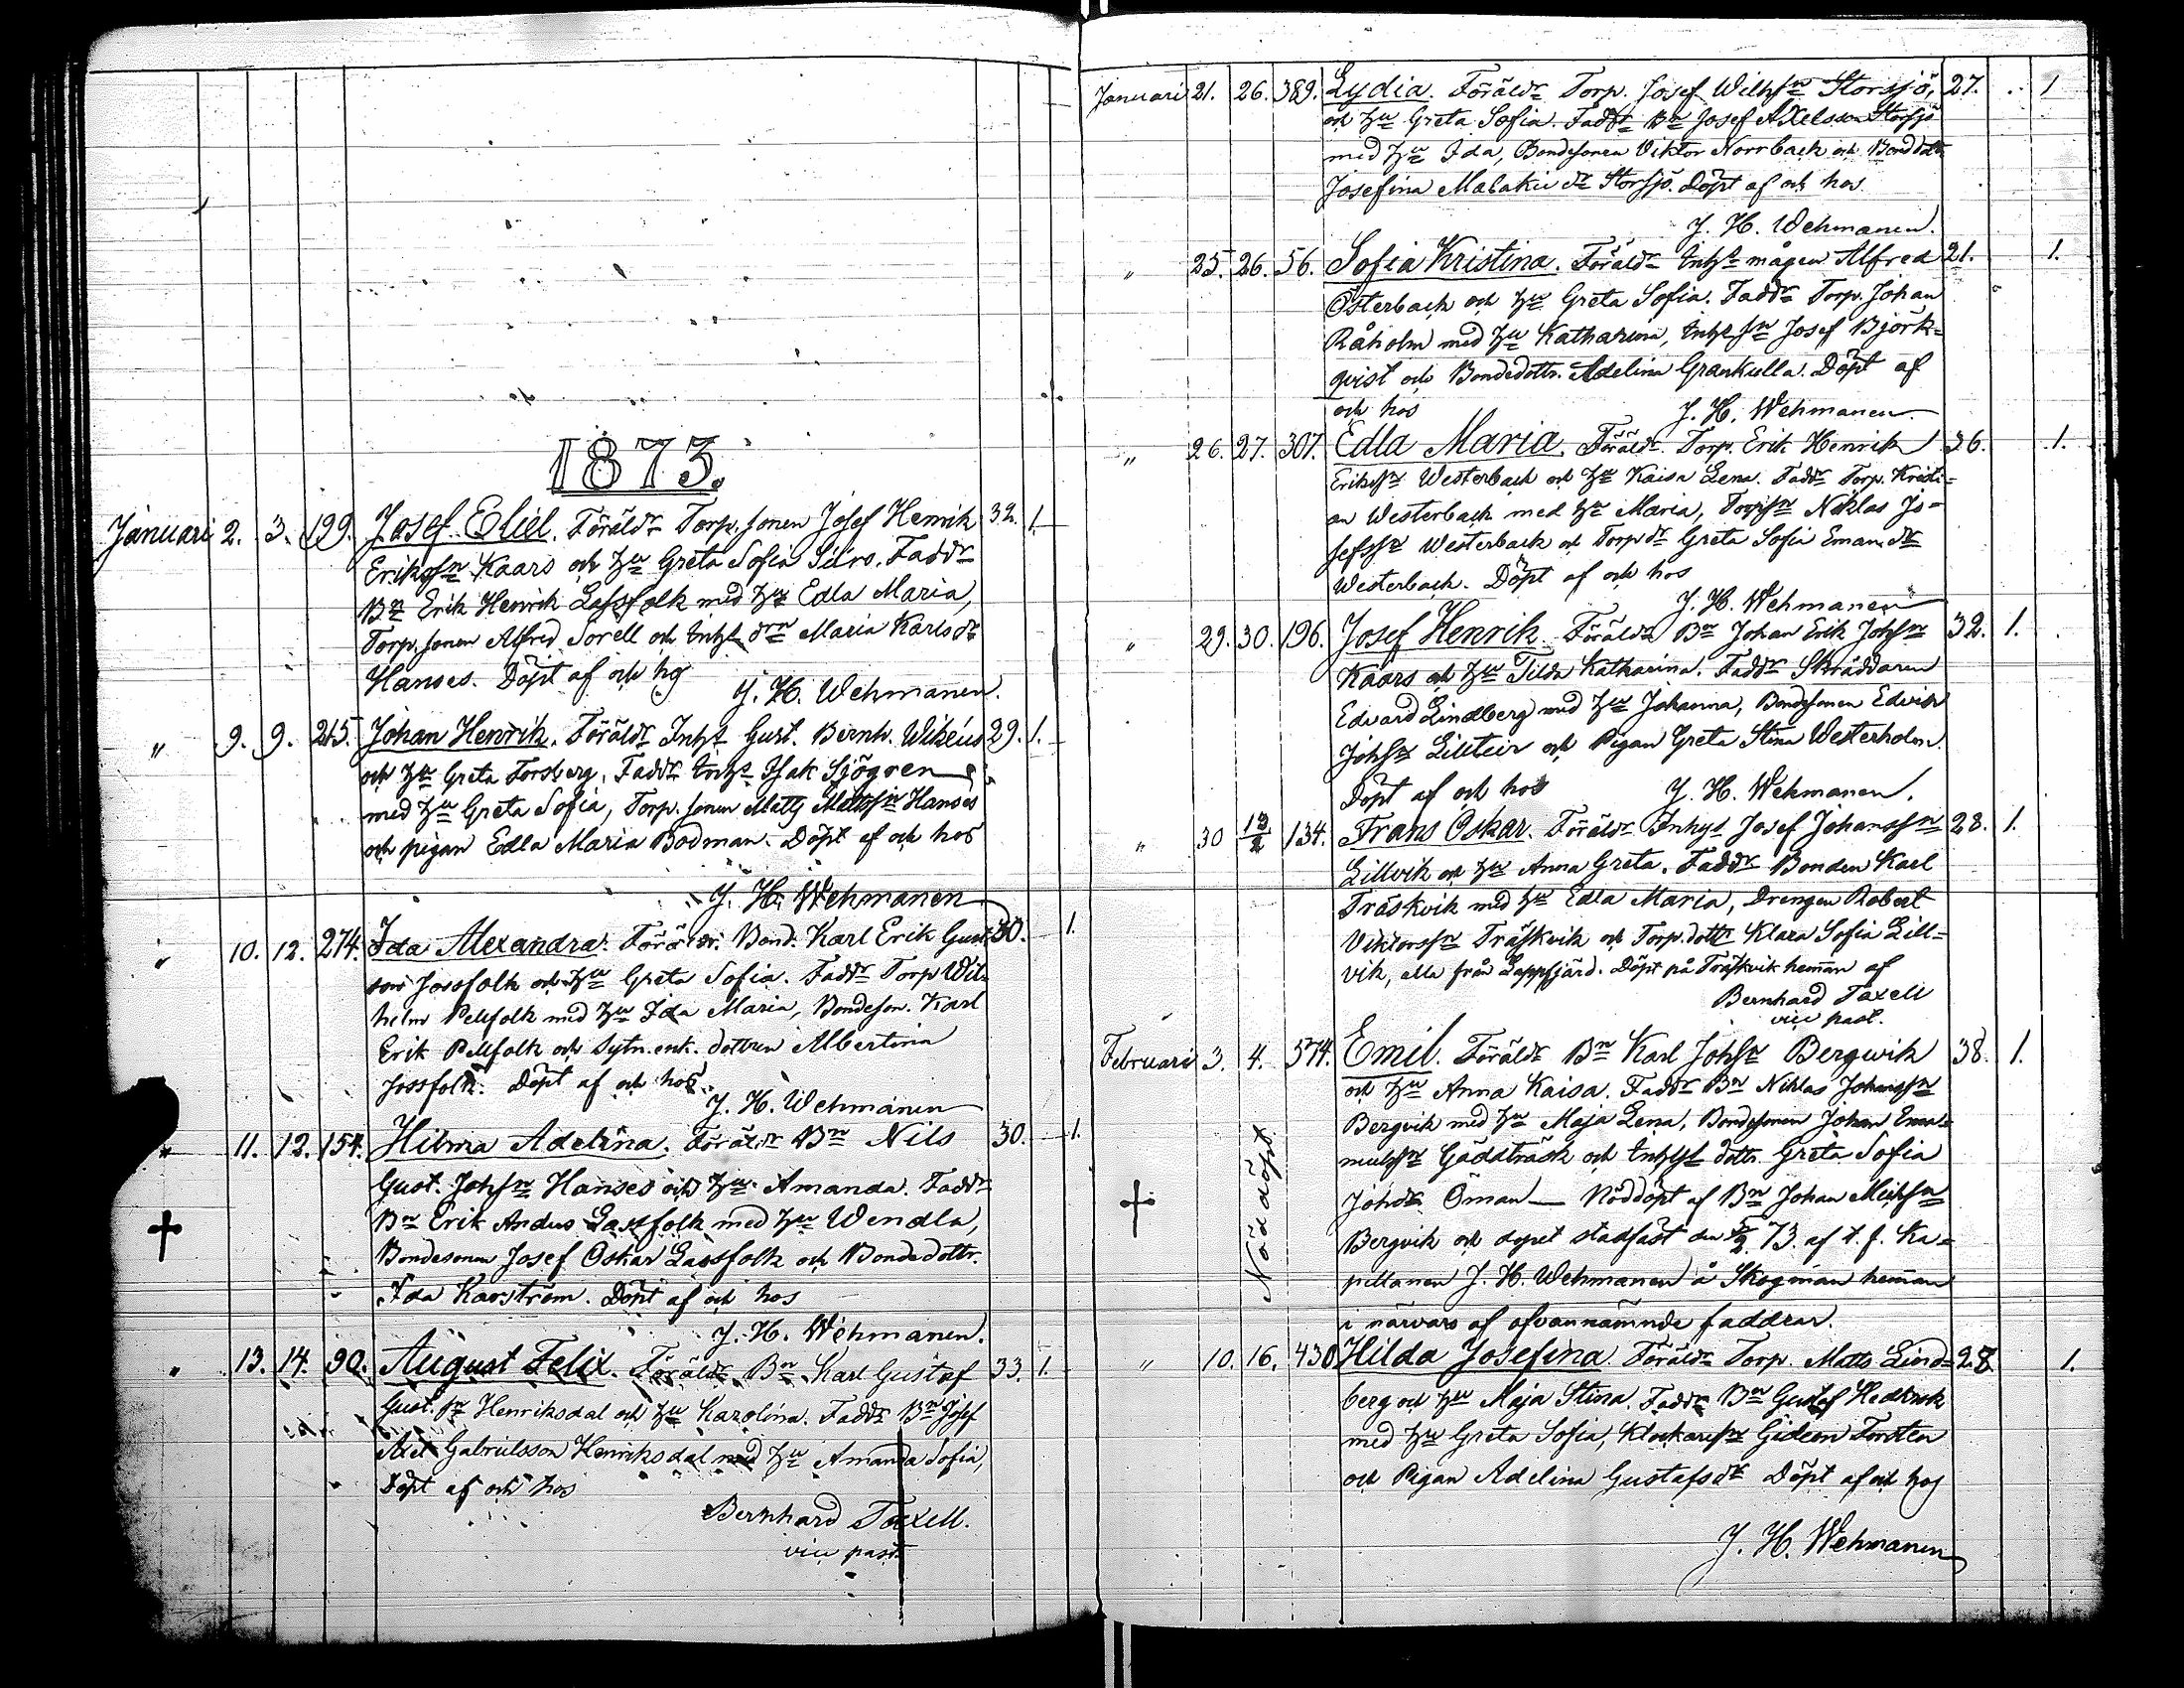 1873.
Januari 2. 3. 199. Josef Eliel. Föräldr Torp. sonen Josef Henrik 32. 1.
Eriksson Kaars och hu Greta Sofia Faddr
Bn Erik Henrik Lassfolk med hu Edla Maria,
Torp. sonen Alfred Sorell och Inhys drn Maria Karlsdr
Hanses. Döpt af och hos
J. H. Wehmanen.
" 9. 9. 215. Johan Henrik. Föräldr Inhys Gust. Bernh. 29. 1.
och hu Greta Forsberg. Faddr Inhys Isak Sjögren
med hu Greta Sofia, Torp. sonen Matts Mattssn Hanses
och pigan Edla Maria Bodman. Döpt af och hos
J. H. Wehmanen
" 10. 12. 274. Ida Alexandra. Föräldr. Bond. Karl Erik Gust. 30. 1.
son Jossfolk och hu Greta Sofia. Faddr Torp Wil-
helm Pellfolk med hu Ida Maria, Bondeson. Karl
Erik Pellfolk och Sytn. enk. dottren Albertina
Jossfolk. Döpt af och hos
J. H. Wehmanen
" 11. 12. 154. Hilma Adelina. Föräldr Bn Nils 30. 1.
Gust. Johsn Hanses och hu Amanda. Faddr
Bn Erik Anders Lassfolk med hu Wendla,
Bondesonen Josef Oskar Lassfolk och Bondedottr.
Ida Karström. Döpt af och hos
J. H. Wehmanen.
" 13. 14. 90. August Felix. Föräldr Bn Karl Gustaf 33. 1.
Gust. sn Henriksdal och hu Karolina. Faddr Bn Josef
Gabrielsson Henriksdal med hu Amanda Sofia,
Döpt af och hos
Bernhard Taxell.
vice past.
Januari 21. 26. 389. Lydia. Föräldr Torp. Josef Wilhsn Storsjö, 27. 1
och hu Greta Sofia. Faddr Bn Josef Axelsson Storsjö
med hu Ida, Bondesonen Viktor Norrback och Bonddottr
Josefina dr Storsjö. Döpt af och hos
J. H. Wehmanen.
" 25. 26. 56. Sofia Kristina. Föräldr Inhys mågen Alfred 21. 1.
Österback och hu Greta Sofia. Faddr Torp. Johan
Råholm med hu Katharina, Inhys sn Josef Björk-
qvist och Bondedottr. Adelina Grankulla. Döpt af
och hos J. H. Wehmanen
" 26. 27. 307. Edla Maria. Föräldr. Torp. Erik Henrik 36. 1.
Erikssn Westerback och hu Kaisa Lena. Faddr Torp. Kristi-
an Westerback med hu Maria, Torpsn Niklas Jo-
sefssn Westerback och Torp dr Greta Sofia Eman. dr
Westerback. Döpt af och hos
J. H. Wehmanen
" 29. 30. 196. Josef Henrik. Föräldr Bn Johan Erik Johsn 32. 1.
Kaars och hu Tilda Katharina. Faddr Skräddaren
Edvard Lindberg med hu Johanna, Bondesonen Edvin
Johsn Lillteir och Pigan Greta Stina Westerholm.
Döpt af och hos J. H. Wehmanen.
" 30 13/2 134. Frans Oskar. Föräldr Inhys Josef Johanssn 28. 1.
Lillvik och hu Anna Greta. Faddr Bonden Karl
Träskvik med hu Edla Maria, Drengen Robert
Viktorssn Träskvik och Torp. dottr Klara Sofia Lill-
vik, alla från Lappfjärd. Döpt på Träskvik heman af
Bernhard Taxell
vice past.
Februari 3. 4. 574. Emil. Föräldr Bn Karl Johsn Bergwik 38. 1.
och hu Anna Kaisa. Faddr Bn Niklas Johanssn
Bergvik med hu Maja Lena, Bondesonen Johan Ema-
nuelssn Gäddträsk och Inhys dottr Greta Sofia
Johdr Öman — Nöddöpt af Bn Johan Michsn
Bergvik och dopet stadfäst den 5/2 73. af t. f. Ka-
pellanen J. H. Wehmanen å Skogman heman
i närvaro af ofvannämnde faddrar.
Nöddöpt
" 10. 16. 430 Hilda Josefina. Föräldr Torp. Matts Lind- 28 1.
berg och hu Maja Stina. Faddr Bn Gustaf
med hu Greta Sofia, Klockaresn Gideon Forstén
och Pigan Adelina Gustafsdr Döpt af och hos
J. H. Wehmanen